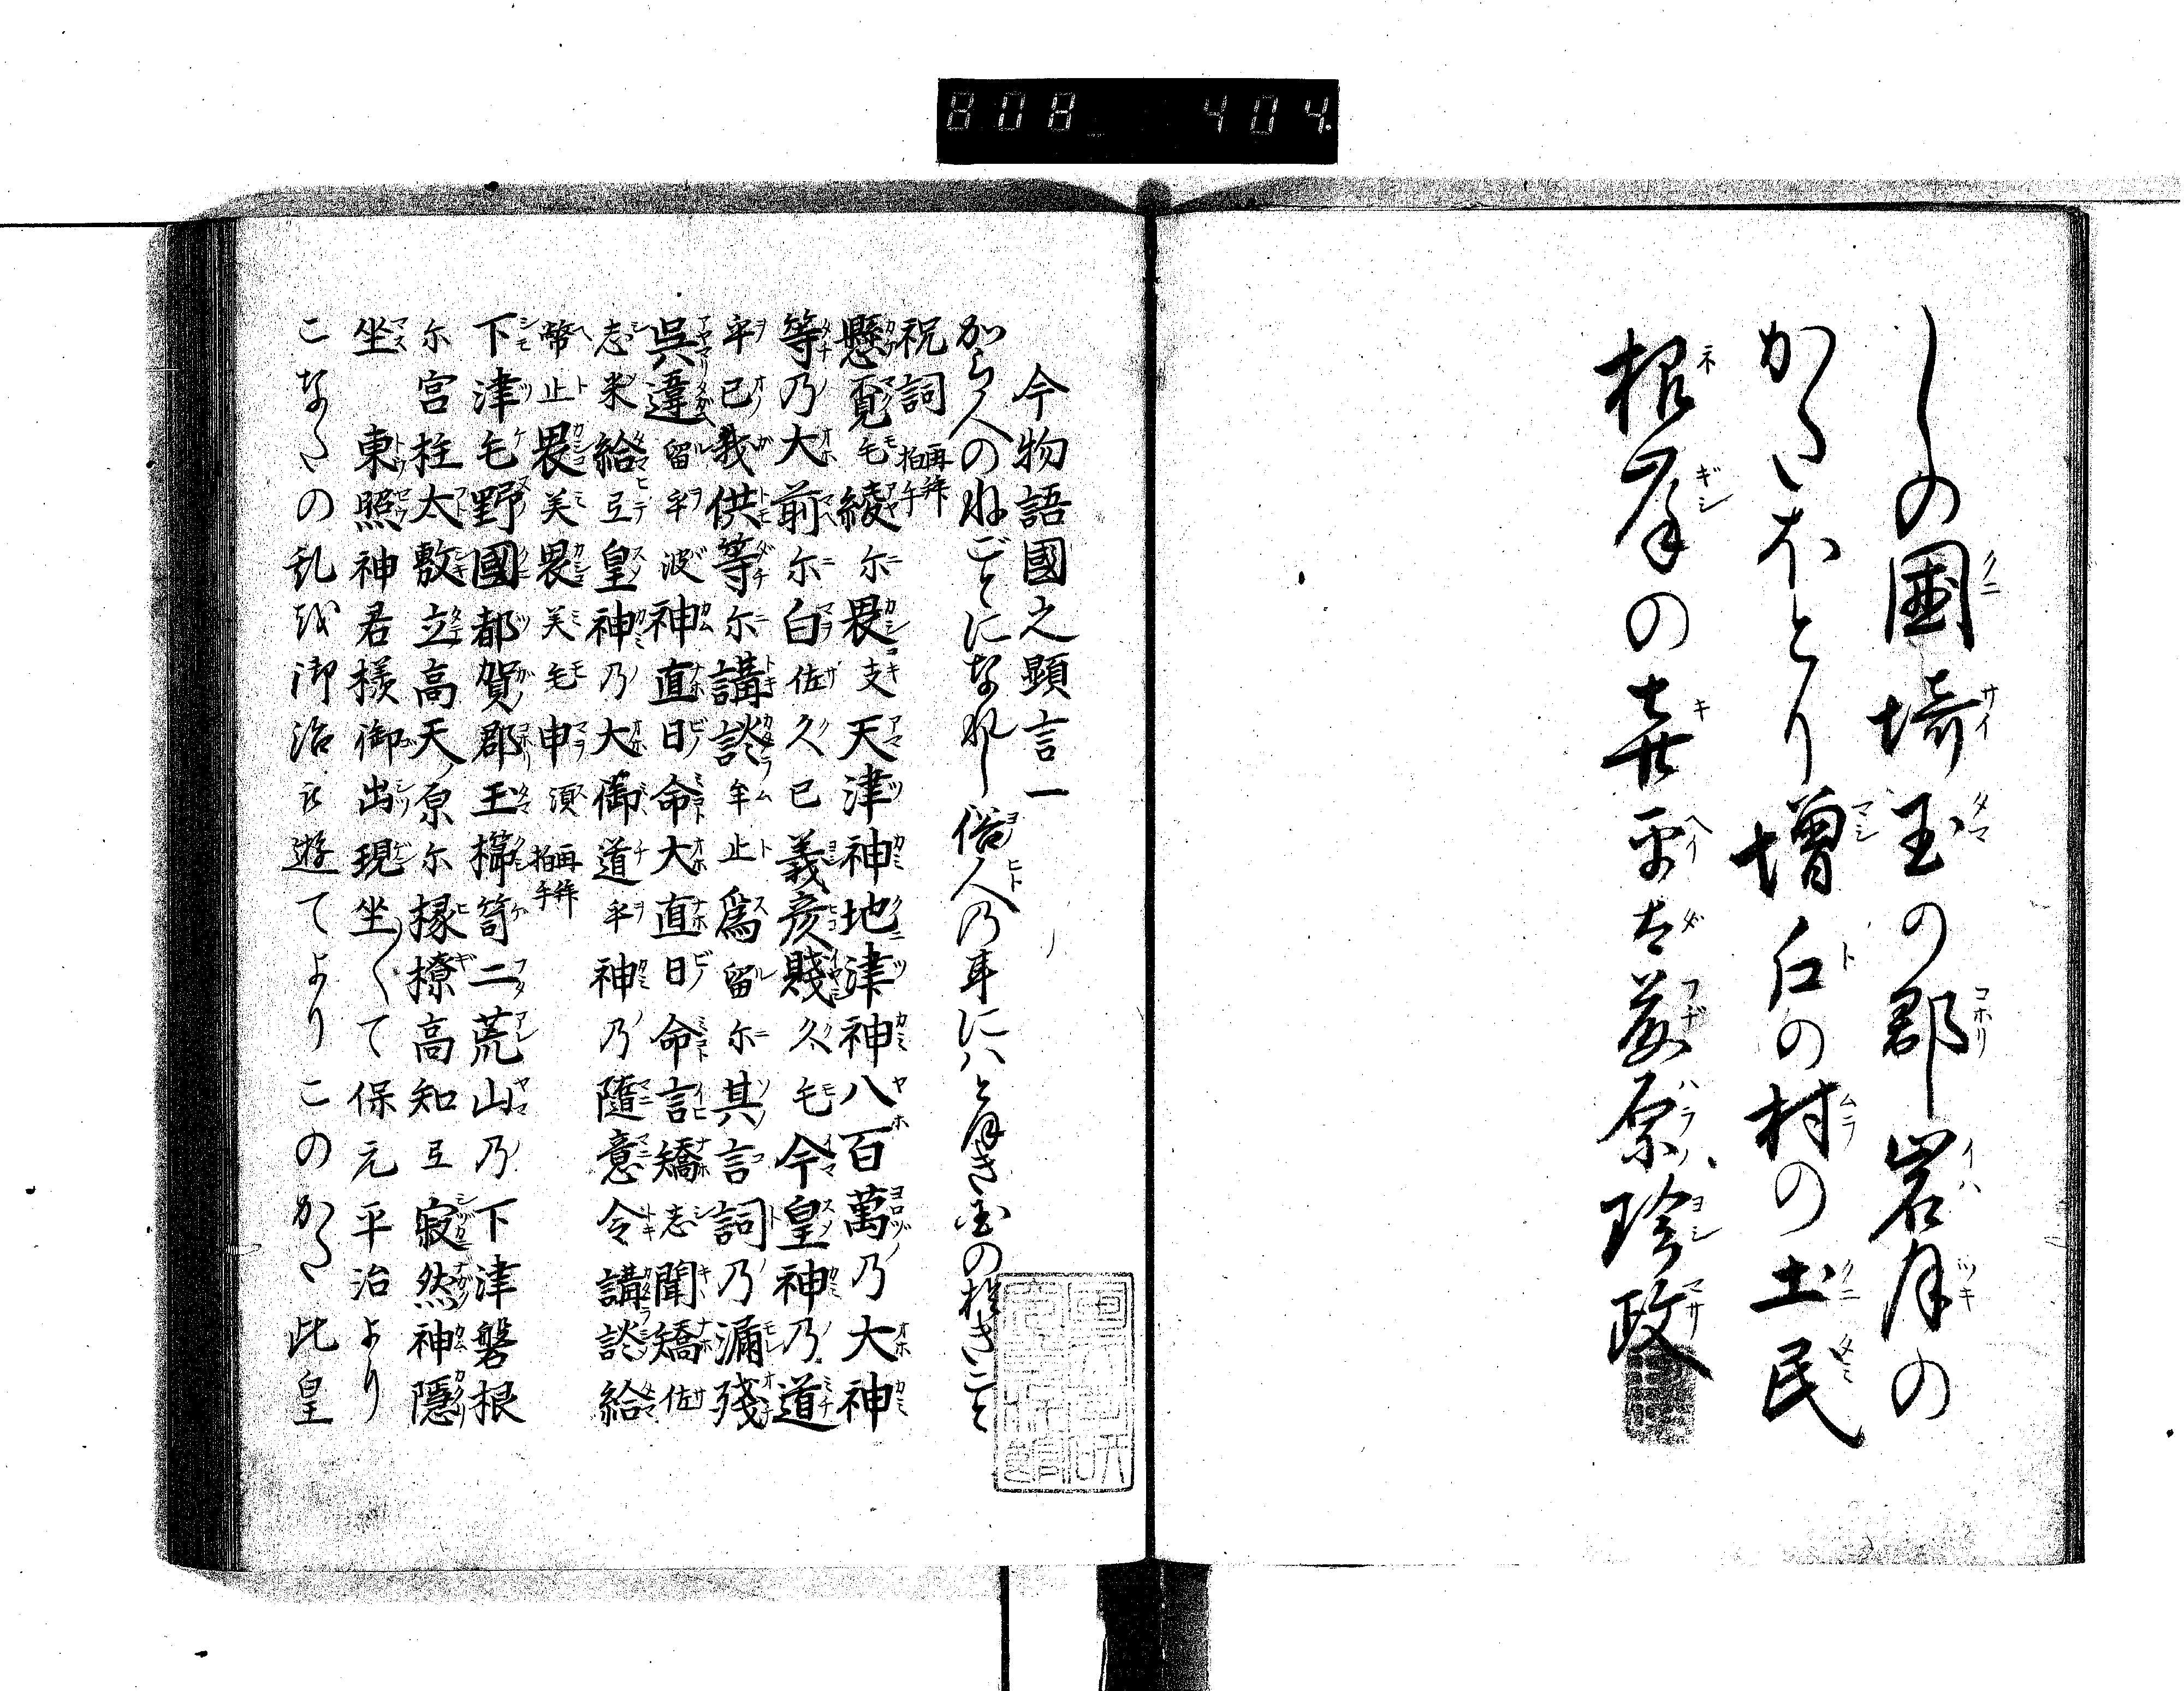 808 404.
しの國埼玉の郡岩月の
かたほとり増戸の村の土民
根岸の㐂平太藤原珍政
今物語國之顕言一
から人のねごとになれし俗人乃耳にハ
祝詞 再拝拍手
懸覔毛綾尓畏支天津神地津神八百萬乃大神
等乃大前尓白佐久已義彦賤久毛今皇神乃道
乎已我供等尓講談牟止爲留尓其言詞乃漏殘
呉違留乎波神直日命大直日命言矯志聞矯佐
志米給互皇神乃大御道乎神乃隨意令講談給
幣止畏美畏美毛申須 再拝拍手
下津毛野國都賀郡玉櫛笥二荒山乃下津磐根
尓宮柱太敷立高天原尓椽橑高知互寂然神隱
坐 東照神君様御出現坐〳〵て保元平治より
こなたの乱越御治え遊てよりこのかた此皇